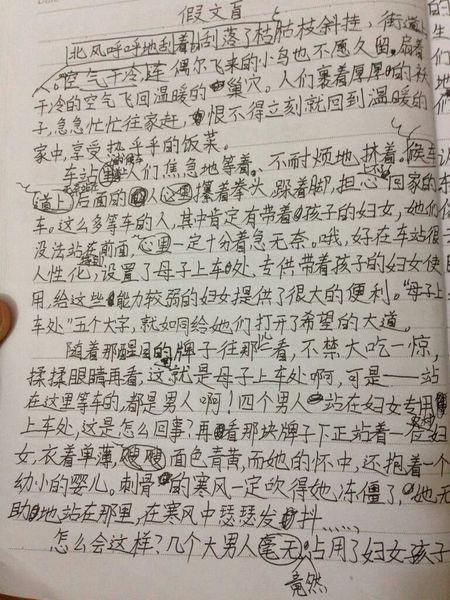 假文盲
北风呼呼地刮着,刮落了枯骷枝斜挂,街道上
。空气干冷,连偶尔飞来的小鸟也不愿久留,扇着
干冷的空气飞回温暖的巢穴。人们裹着厚厚的袄
子,急急忙忙往家赶,恨不得立刻就回到温暖的
家中,享受热乎乎的饭菜。
车站里人们焦急地等着、不耐烦地挤着。候车
道上后面的人攥着拳头,踩着脚,担心回家的
车。这么多等车的人,其中肯定有带着孩子的妇女,她们
没法站在前面,心里一定十分着急无奈。哦,好在车站很
人性化,设置了母子上车处,专供带着孩子的妇女使
用,给这些能力较弱的妇女提供了很大的便利。“母子上
车处”五个大字,就如同给她们打开了希望的大道。
随着那醒目的牌子往那边看,不禁大吃一惊,
揉揉眼睛再看,这就是母子上车处啊,可是——站
在这里等车的,都是男人啊!四个男人站在妇女专用
上车处,这是怎么回事?再看那块牌子下正站着一位妇
女,衣着单薄,面色青黄,而她的怀中,还抱着一个
幼小的婴儿。刺骨的寒风一定吹得她冻僵了,她无
助地站在那里,在寒风中瑟瑟发抖……
怎么会这样?几个大男人毫无占用了妇女孩子
竟然